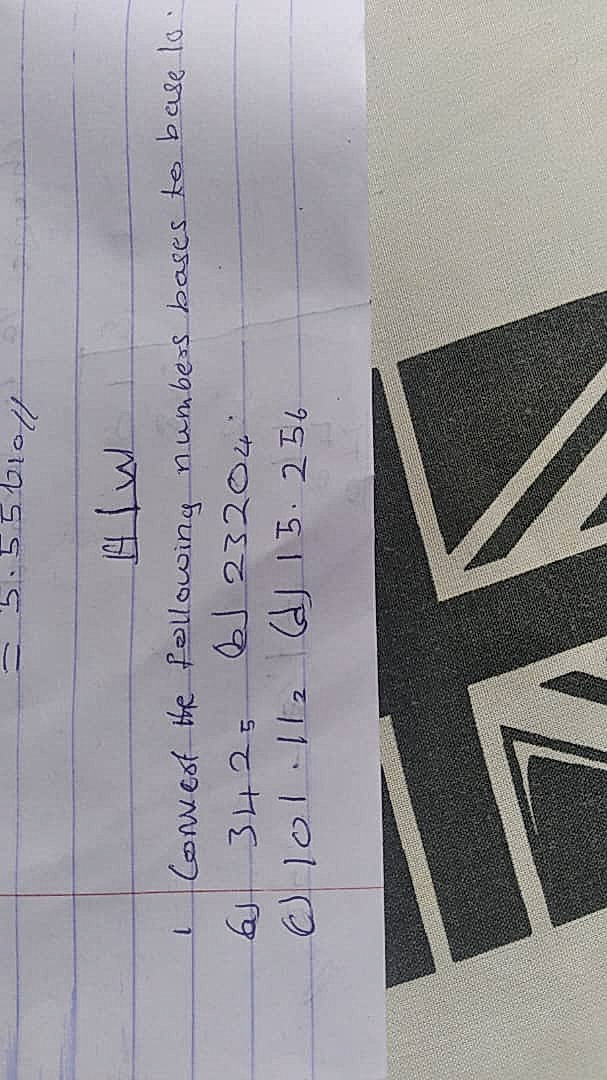 = 5.5561010//
H/W
1 Convert the following numbers bases to base 10.
a) 342₅ (b) 2320₄
(c) 101.11₂ (d) 15.25₆